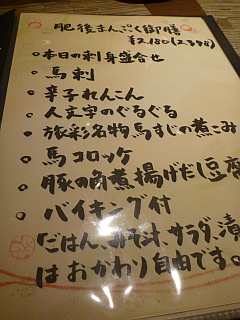 肥後まんぷく御膳
¥2,180(2,398)
本日の刺身盛合せ
馬刺
辛子れんこん
人文字のぐるぐる
旅彩名物馬すじの煮こみ
馬コロッケ
豚の角煮揚げだし豆腐
バイキング付
「ごはん、みそ汁、サラダ、漬
はおかわり自由です。